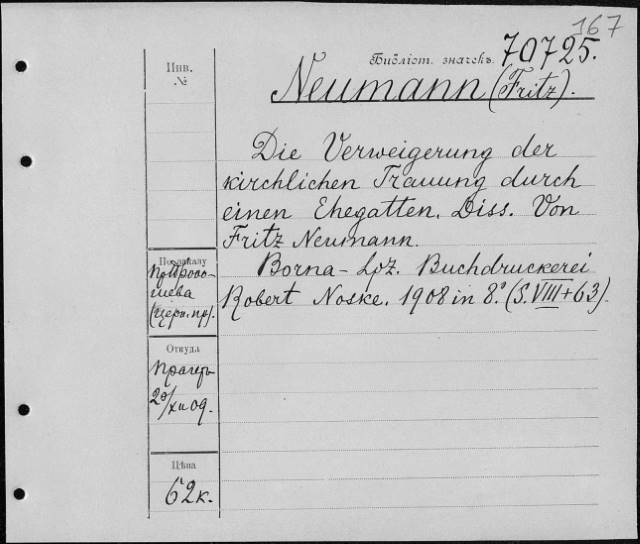 167
Библіот. значекъ. 70725.
Инв.
№
Neumann (Fritz).
Die Verweigerung der
kirchlichen Trauung durch
einen Ehegatten. Diss. Von
Fritz Neumann.
Borna-Lpz. Buchdruckerei
Robert Noske. 1908 in 8.° (S. VIII+63).
По заказу
(церк. пр).
Откуда
Прагеръ
20/XII 09.
Цѣна
62 к.